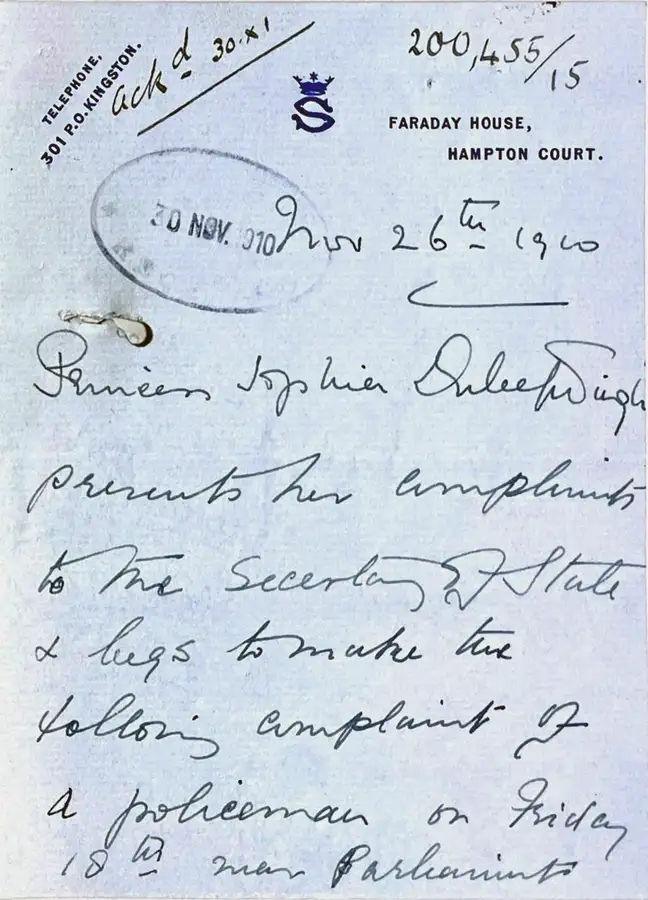 TELEPHONE,
301 P.O. KINGSTON.
ackd 30.XI
200,455/15
S
FARADAY HOUSE,
HAMPTON COURT.
30 NOV. 1910
Nov 26th 1910
Princess Sophia Duleep Singh
presents her compliments
to the Secretary of State
& begs to make the
following complaint of
a policeman on Friday
18th near Parliament